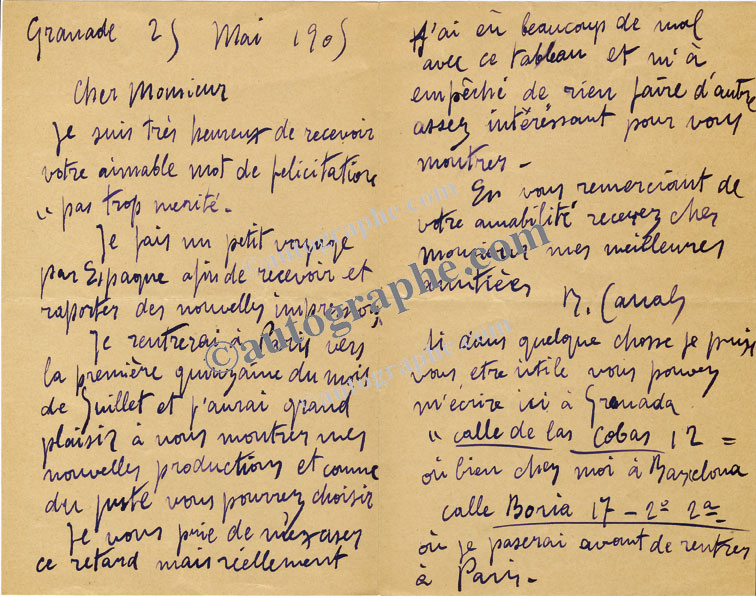 Grenade 25 Mai 1905
Cher Monsieur
Je suis très heureux de recevoir
votre aimable mot de felicitation
" pas trop merité.
Je fais un petit voyage
par Espagne afin de recevoir et
raporter des nouvelles impressions
Je rentrerai à Paris vers
la première quinzaine du mois
de Juillet et j'aurai grand
plaisir à vous montrer mes
nouvelles productions et comme
du juste vous pourrez choisir
Je vous prie de m'excuser
ce retard mais réellement
J'ai eù beaucoup de mal
avec ce tableau et m'à
empêché de rien faire d'autre
assez intéréssant pour vous
montrer -
En vous remerciant de
votre amabilité recevez cher
monsieur mes meilleures
amitiées
R. Canals
Si dans quelque chosse je puisse
vous etre utile vous pouvez
m'écrire ici à Grenada
" calle de las Cobas 12 =
où bien chez moi à Barcelona
calle Boria 17 - 2º 2ª
où je paserai avant de rentrer
à Paris -
©autographe.com
©autographe.com
©autographe.com